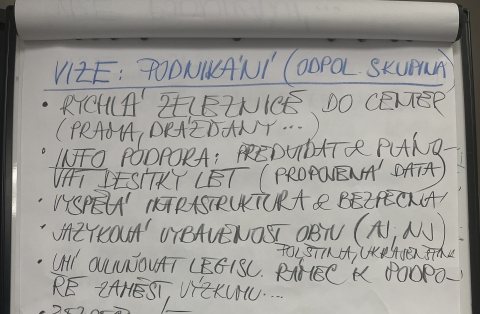 VIZE: PODNIKÁNÍ (ODPOL. SKUPINA)
• RYCHLÁ ŽELEZNICE DO CENTER
(PRAHA, DRÁŽĎANY...)
• INFO PODPORA: PŘEDVÍDAT & PLÁNO-
VAT DESÍTKY LET (PROPOJENÁ DATA)
• VYSPĚLÁ INFRASTRUKTURA & BEZPEČNÁ
• JAZYKOVÁ VYBAVENOST OBYV. (AJ, NJ,
POLŠTINA, UKRAJINŠTINA
• UMÍ OVLIVŇOVAT LEGISL. RÁMEC K PODPO-
ŘE ZAMĚST., VÝZKUMU...